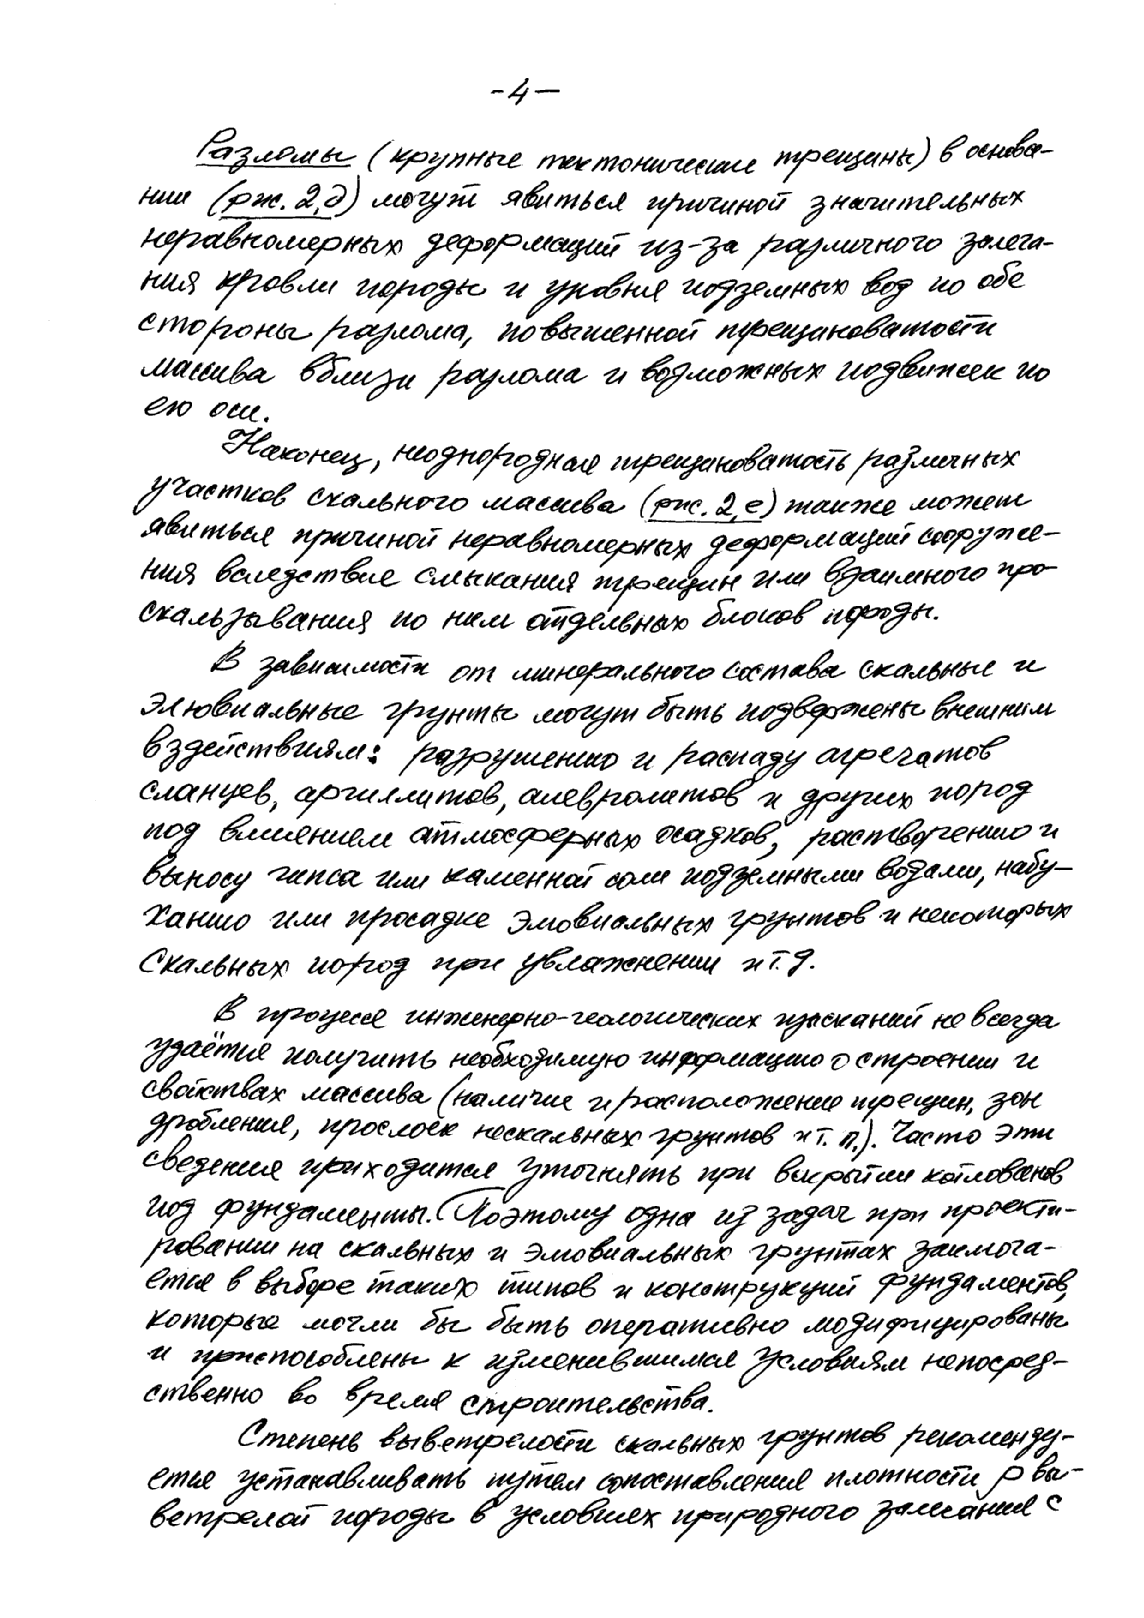 -4-
Разломы (крупные тектонические трещины) в основа-
нии (рис. 2,д) могут явиться причиной значительных
неравномерных деформаций из-за различного залега-
ния кровли породы и уровня подземных вод по обе
стороны разлома, повышенной трещиноватости
массива вблизи разлома и возможных подвижек по
его оси.
Наконец, неоднородная трещиноватость различных
участков скального массива (рис. 2,е) также может
явиться причиной неравномерных деформаций сооруже-
ния вследствие смыкания трещин или взаимного про-
скальзывания по ним отдельных блоков породы.
В зависимости от минерального состава скальные и
элювиальные грунты могут быть подвержены внешним
вздействиям: разрушению и распаду агрегатов
сланцев, аргиллитов, алевролитов и других пород
под влиянием атмосферных осадков, растворению и
выносу гипса или каменной соли подземными водами, набу-
ханию или просадке элювиальных грунтов и некоторых
скальных пород при увлажнении и т.д.
В процессе инженерно-геологических изысканий не всегда
удаётся получить необходимую информацию о строении и
свойствах массива (наличие и расположение трещин, зон
дробления, прослоек нескальных грунтов и т.п.). Часто эти
сведения приходится уточнять при вскрытии котлованов
под фундаменты. Поэтому одна из задач при проекти-
ровании на скальных и элювиальных грунтах заключа-
ется в выборе таких типов и конструкций фундаментов,
которые могли бы быть оперативно модифицированы
и приспособлены к изменившимся условиям непосред-
ственно во время строительства.
Степень выветрелости скальных грунтов рекоменду-
ется устанавливать путем сопоставления плотности ρ вы-
ветрелой породы в условиях природного залегания с